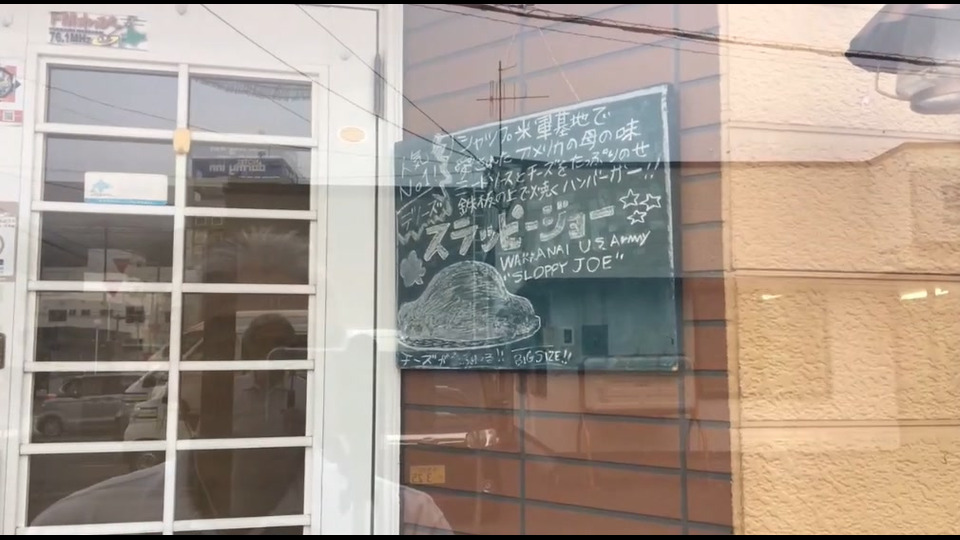 FMわっぴ~
76.1MHz
人気
No.1
シャッフ。米軍基地で
アメリカの母の味
ミートソースとチーズをたっぷりのせ
鉄板の上で焼くハンバーガー!!
デリーズ
スラッピージョー
WAKKANAI U.S Army
"SLOPPY JOE"
BIG SIZE!!